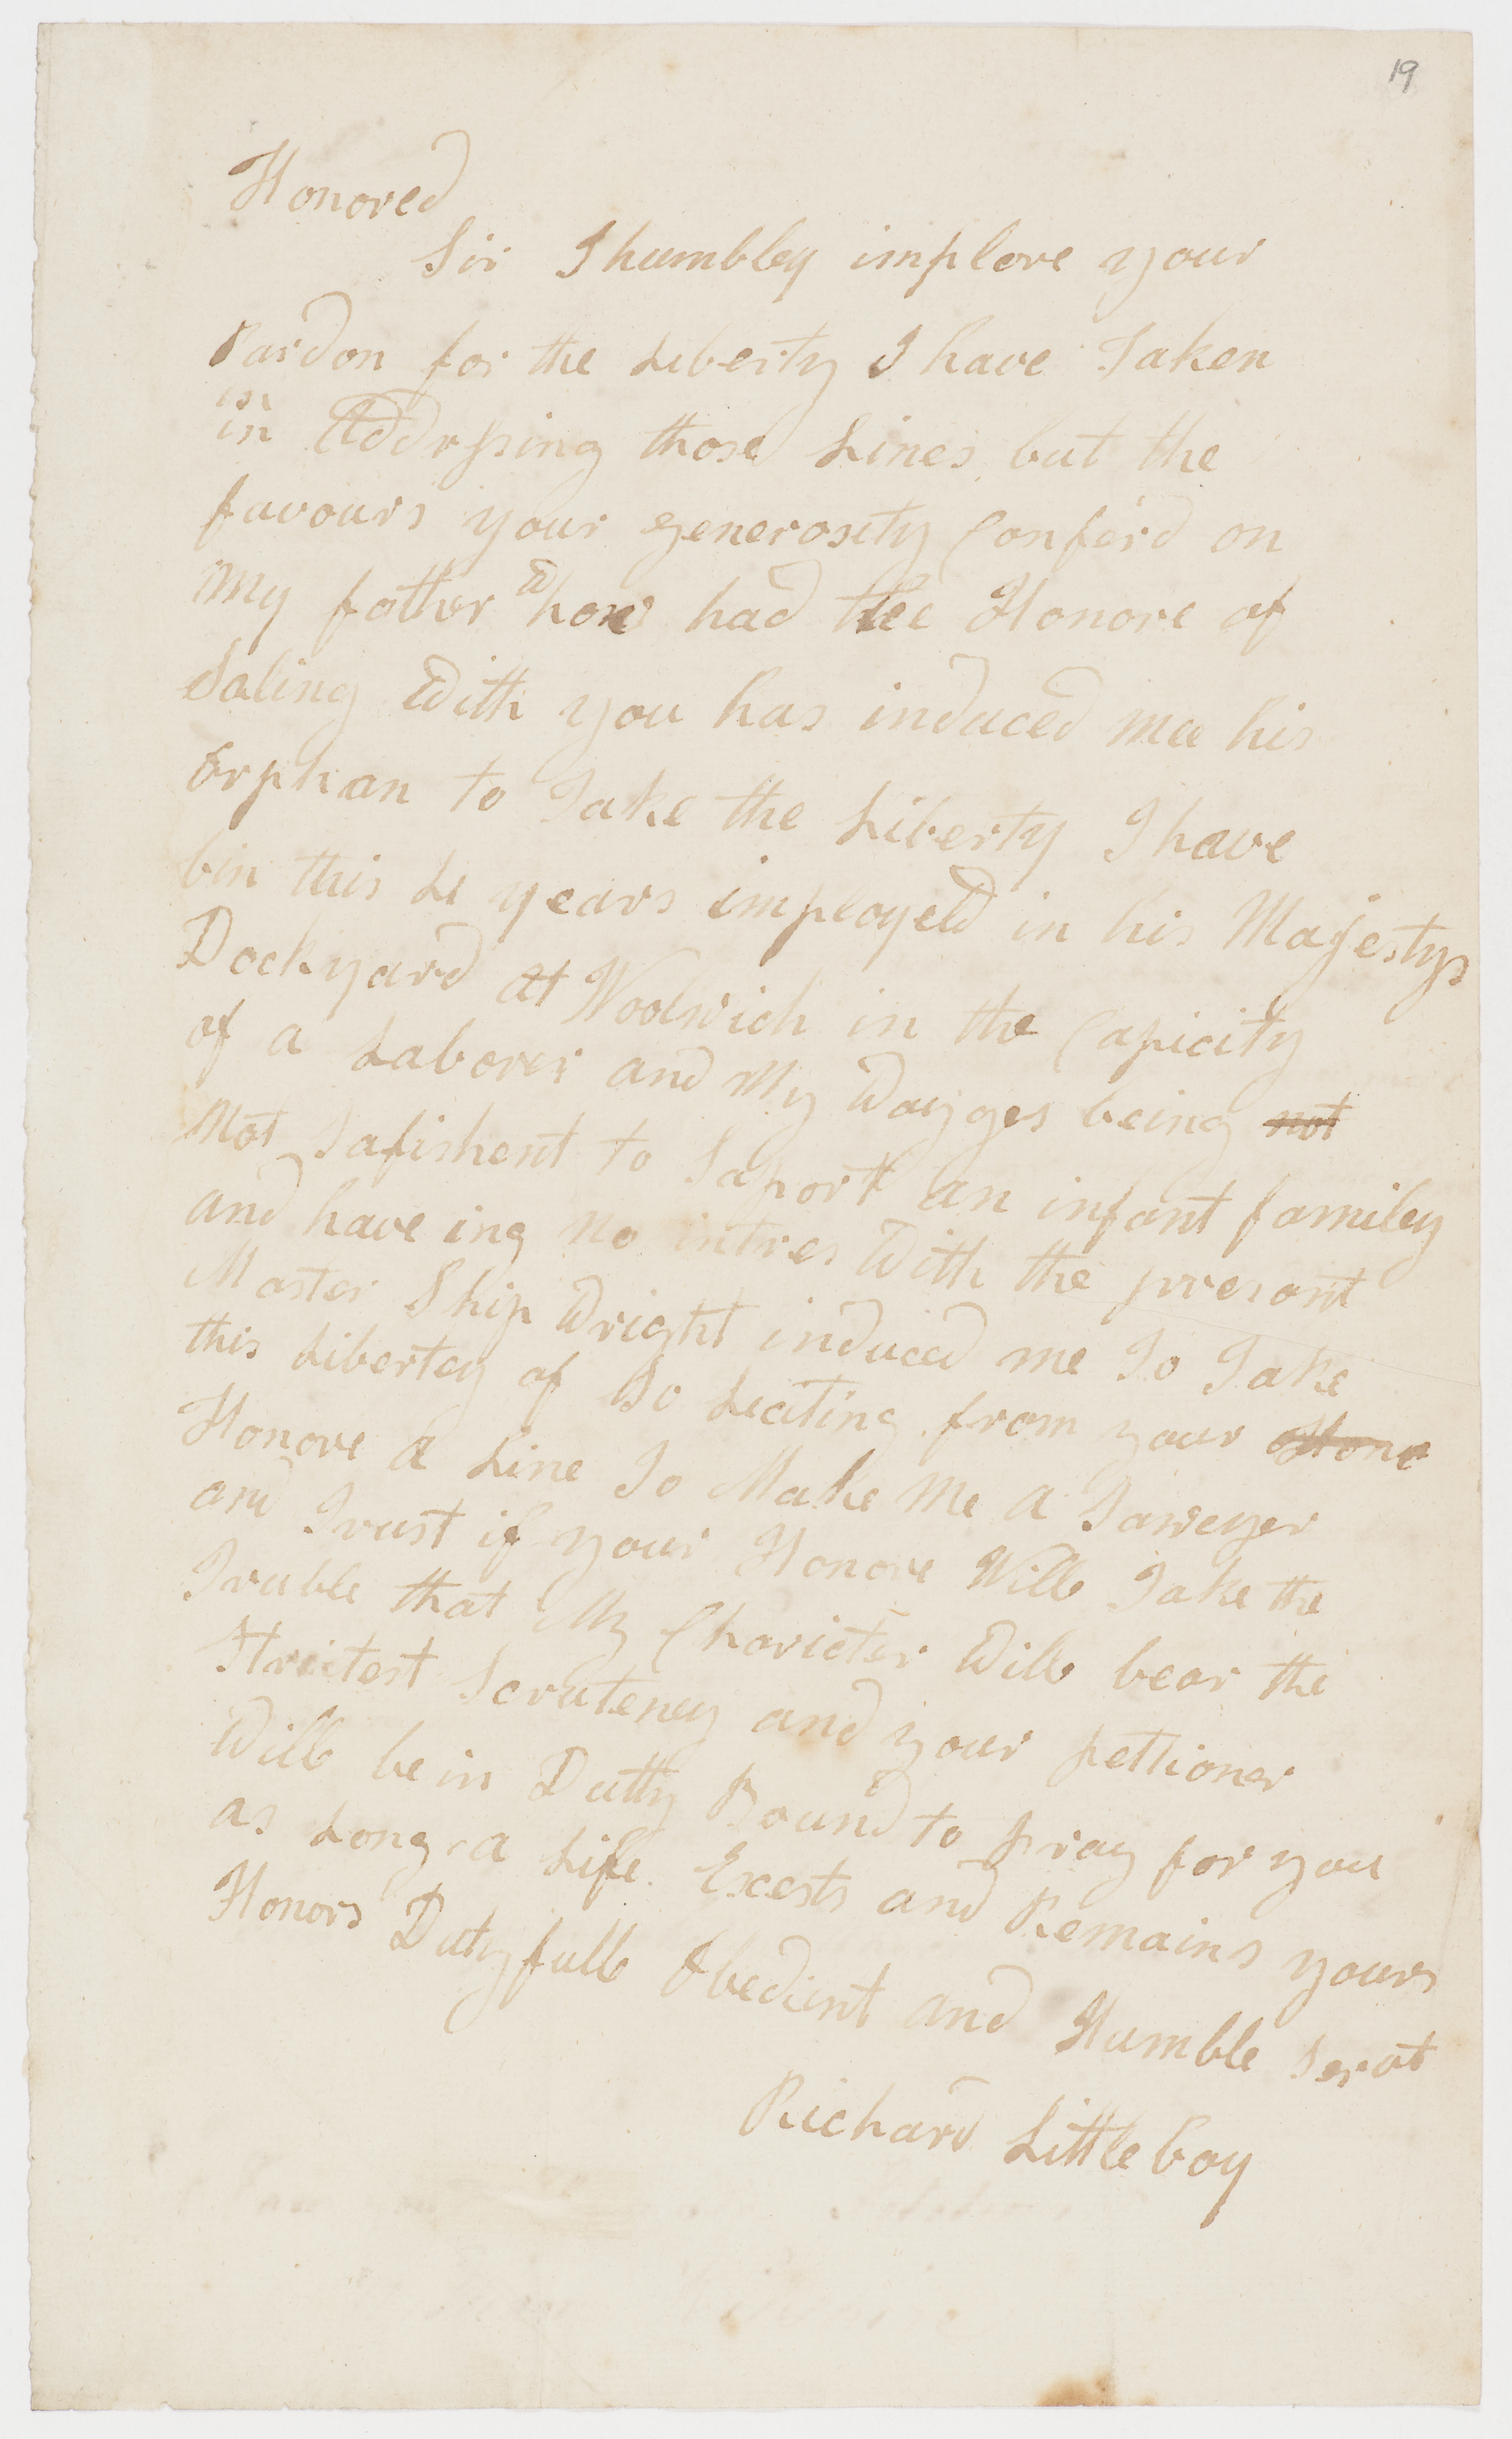 19
Honored
Sir I humbley implore your
Pardon for the Liberty I have Taken
in Addrssing those Lines but the
favours your generosity Conferd on
My father whow had thee Honore of
Saling With you has induced mee his
orphan to Take the Liberty I have
bin this Le years imployed in his Majestys
Dockyard at Woolwich in the Capicity
of a Laborer and My Wayges being not
Not Safishent to Saport an infant familey
and have ing no intres With the presant
Master Ship Wright induced me To Take
this Libertey of So Leciting from your Hone
Honore a Line To Make Me a Saweyer
and Trust if your Honore Will Take the
Truble that My Charicter Will bear the
Strictest Scruteney and your pettioner
Will be in Dutty Bound to pray for you
as Long a Life Excests and Remains yours
Honors Dutyfull Obedient and Humble Servt
Richard Littleboy